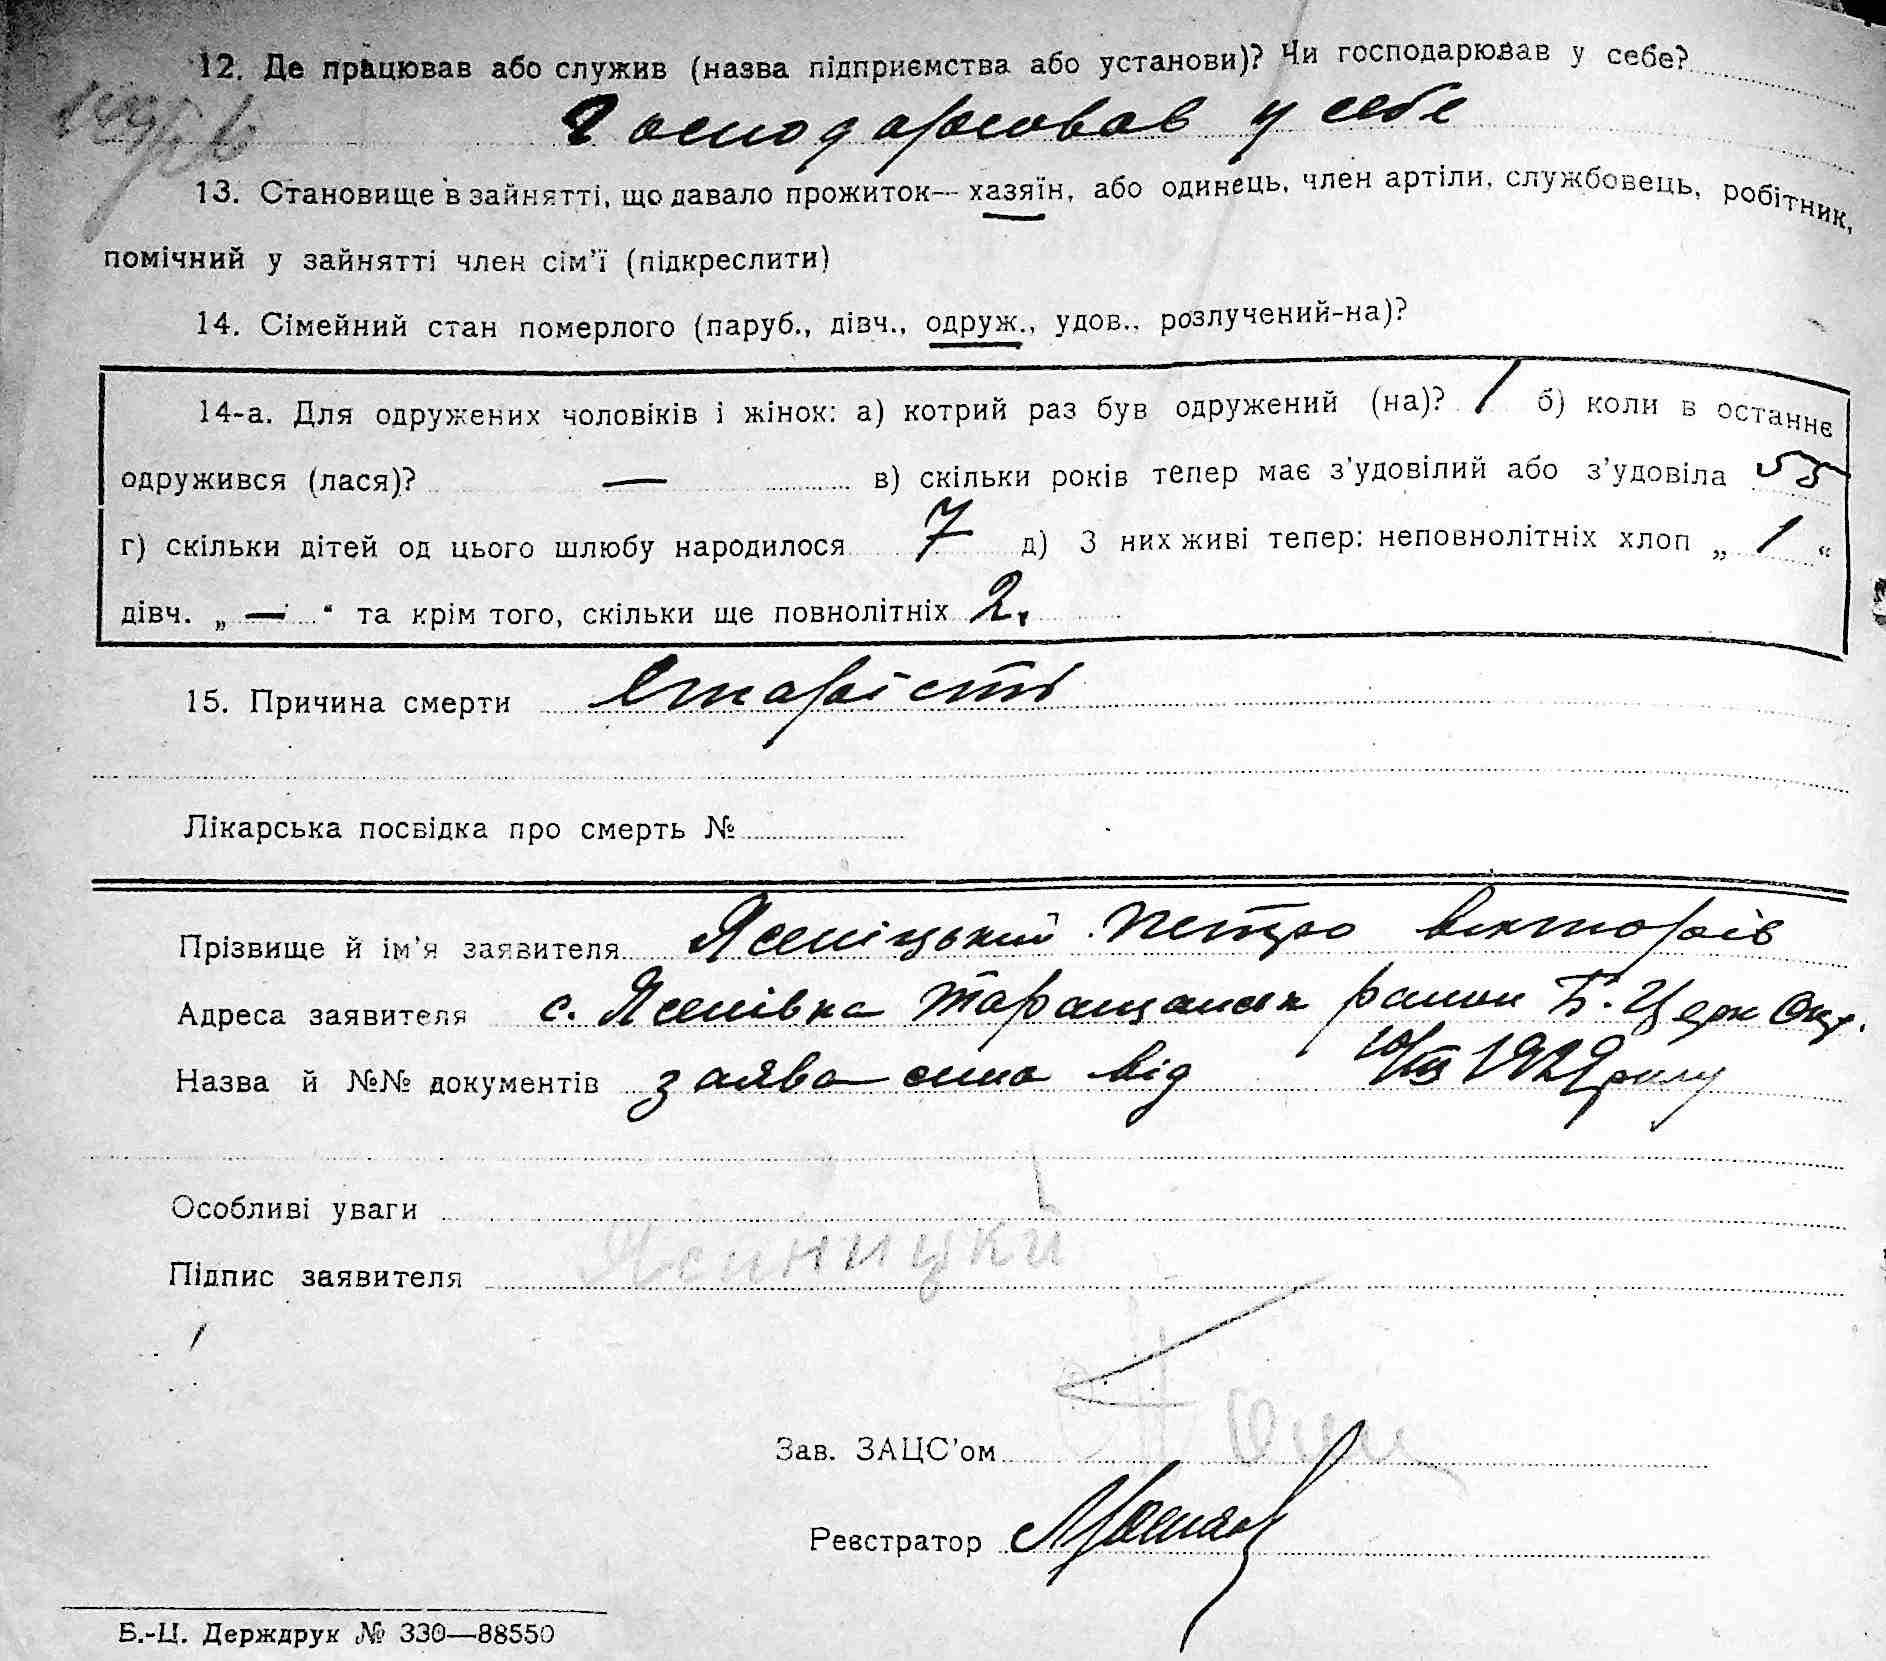 12. Де працював або служив (назва підприємства або установи)? Чи господарював у себе?
Господарював у себе
13. Становище в зайнятті, що давало прожиток— хазяїн, або одинець, член артіли, службовець, робітник,
помічний у зайнятті член сім'ї (підкреслити)
14. Сімейний стан померлого (паруб., дівч., одруж., удов., розлучений-на)?
14-а. Для одружених чоловіків і жінок: а) котрий раз був одружений (на)? 1 б) коли в останнє
одружився (лася)? — в) скільки років тепер має з'удовілий або з'удовіла 55
г) скільки дітей од цього шлюбу народилося 7 д) З них живі тепер: неповнолітніх хлоп „ 1 “
дівч. „ — “ та крім того, скільки ще повнолітніх 2.
15. Причина смерти Старість
Лікарська посвідка про смерть №
Прізвище й ім'я заявителя Ясеніцький Петро Вікторів
Адреса заявителя с. Ясенівка Таращанськ район Б. Церк Окр.
Назва й №№ документів заява сина від 1929 року
Особливі уваги
Підпис заявителя Ясиницкй
Зав. ЗАЦС'ом
Реєстратор
Б.-Ц. Держдрук № 330—88550